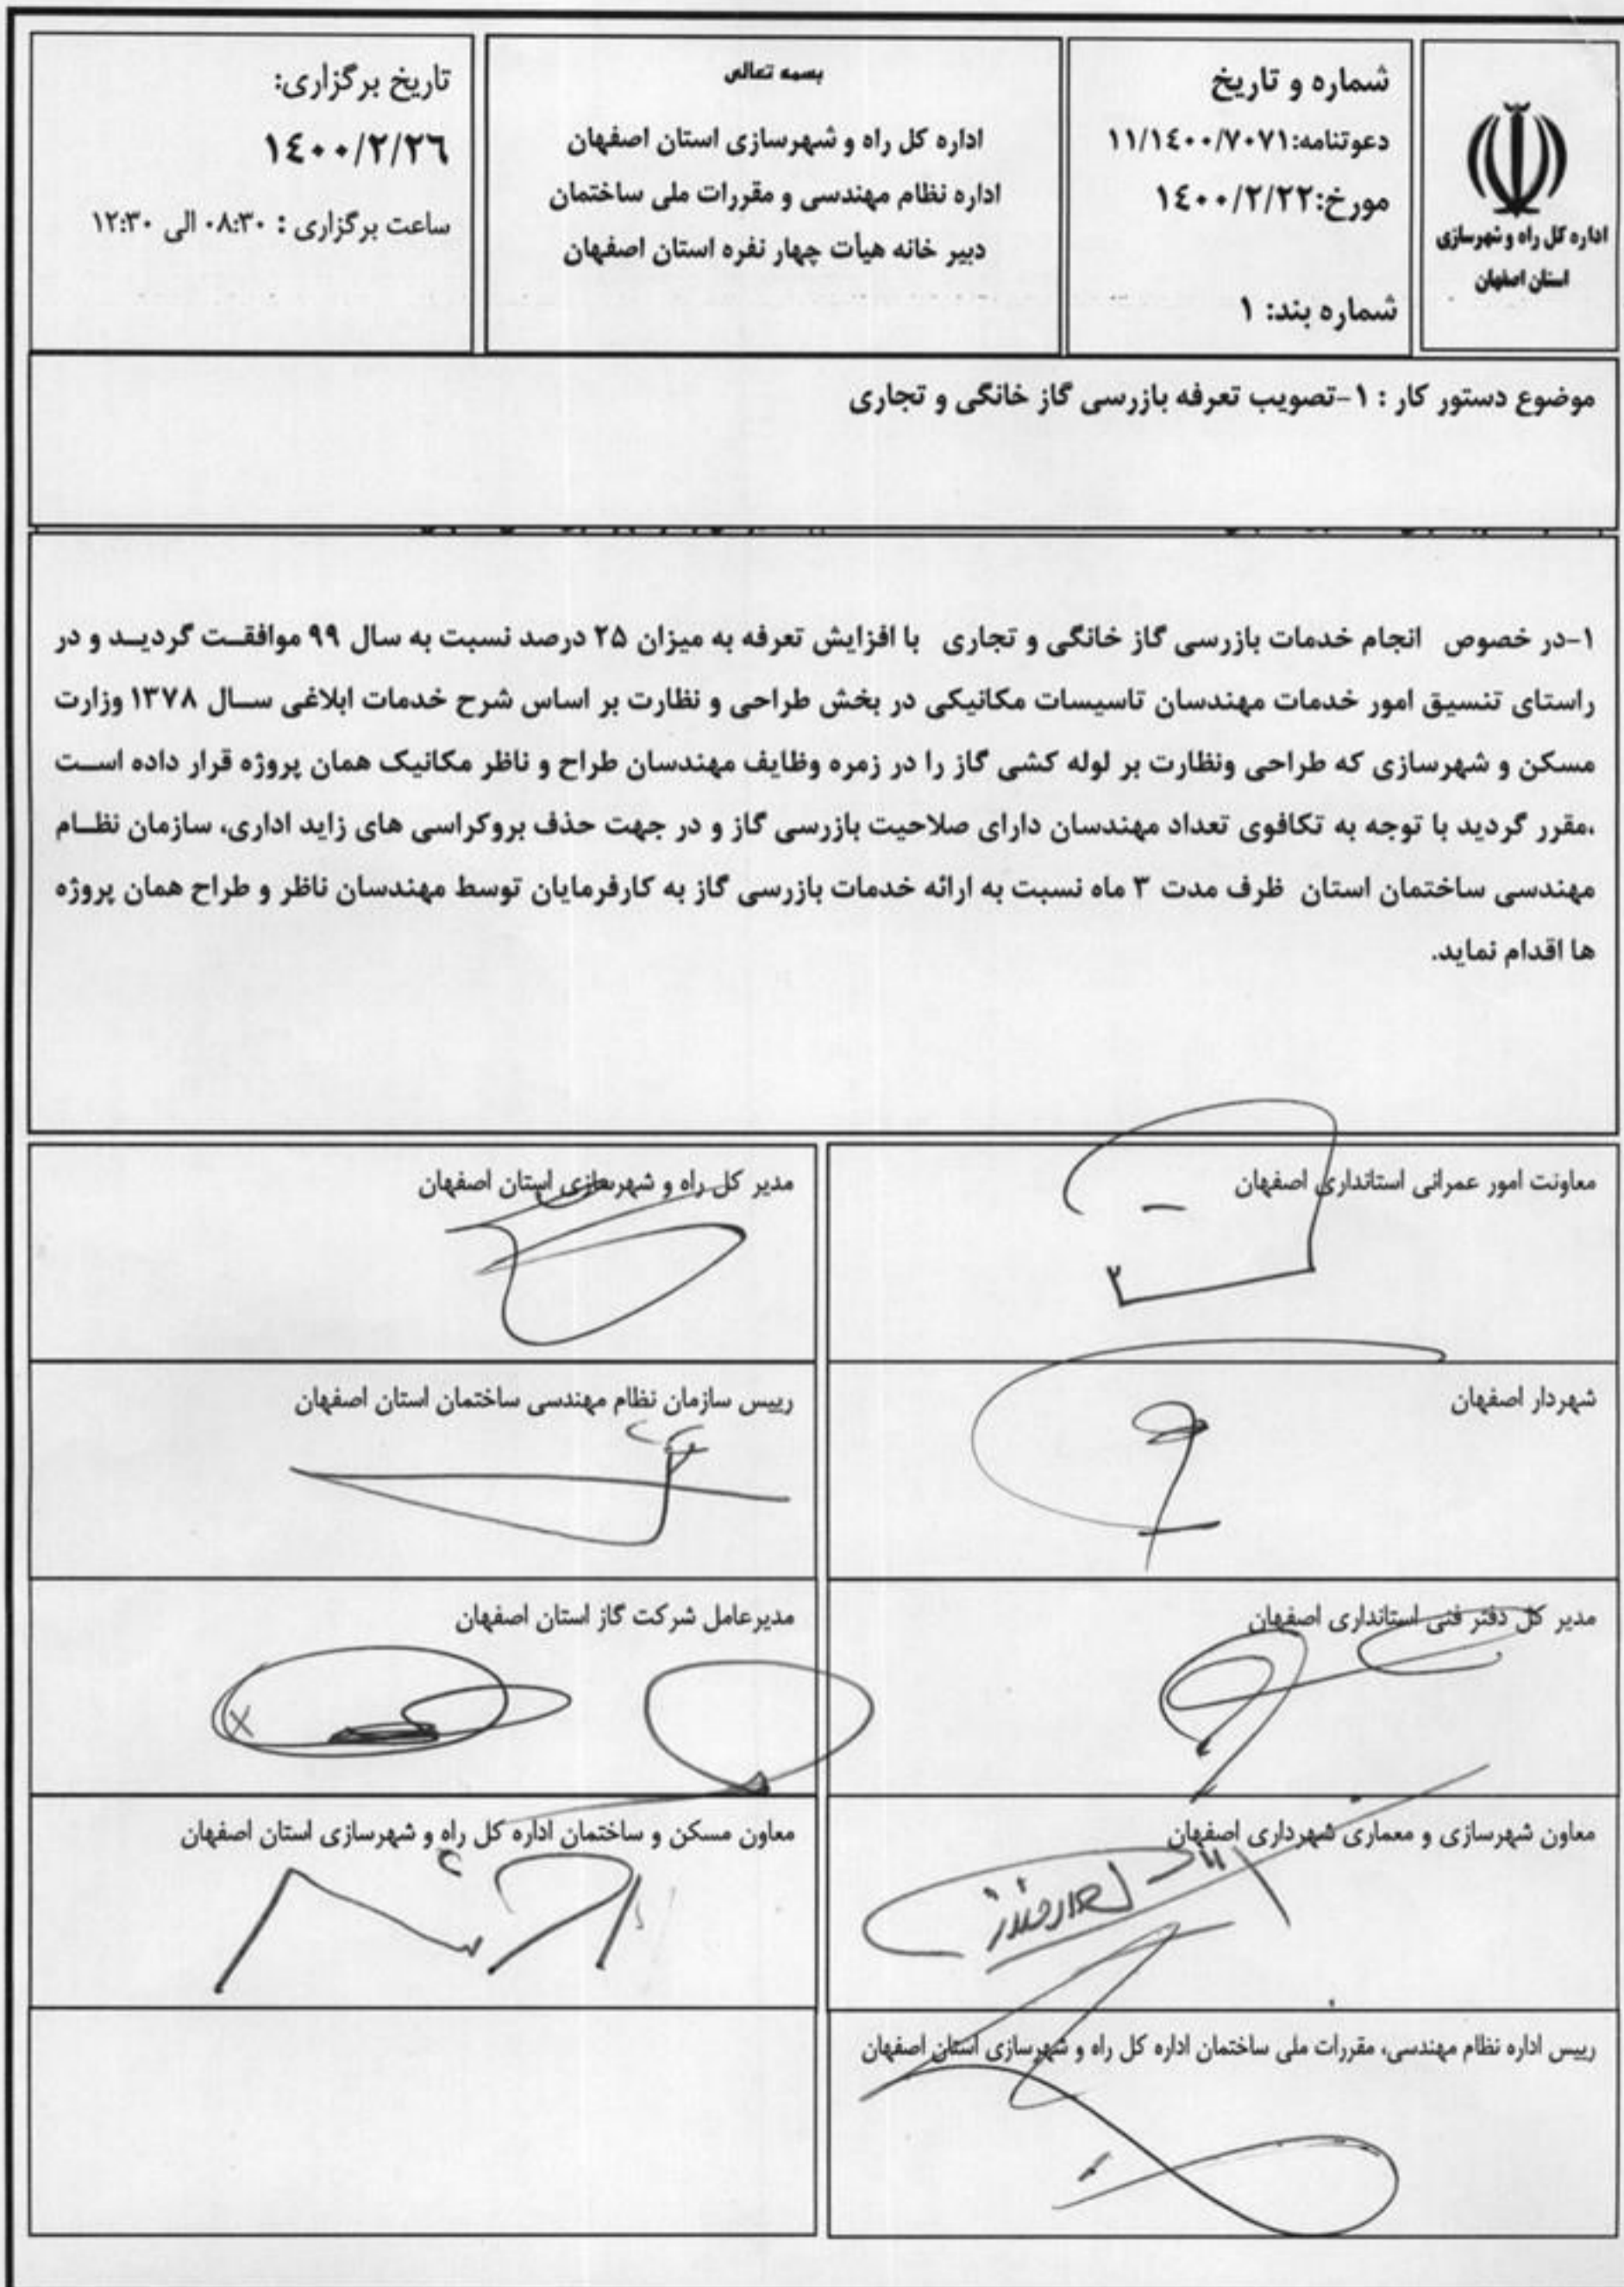 اداره کل راه و شهرسازی
استان اصفهان
شماره و تاریخ
دعوتنامه:۱۱/۱٤۰۰/۷۰۷۱
مورخ:۱٤۰۰/۲/۲۲
شماره بند: ۱
بسمه تعالی
اداره کل راه و شهرسازی استان اصفهان
اداره نظام مهندسی و مقررات ملی ساختمان
دبیر خانه هیأت چهار نفره استان اصفهان
تاریخ برگزاری:
۱٤۰۰/۲/۲٦
ساعت برگزاری : ۰۸:۳۰ الی ۱۲:۳۰
موضوع دستور کار : ۱-تصویب تعرفه بازرسی گاز خانگی و تجاری
۱-در خصوص انجام خدمات بازرسی گاز خانگی و تجاری با افزایش تعرفه به میزان ۲۵ درصد نسبت به سال ۹۹ موافقـت گردیـد و در
راستای تنسیق امور خدمات مهندسان تاسیسات مکانیکی در بخش طراحی و نظارت بر اساس شرح خدمات ابلاغی سـال ۱۳۷۸ وزارت
مسکن و شهرسازی که طراحی ونظارت بر لوله کشی گاز را در زمره وظایف مهندسان طراح و ناظر مکانیک همان پروژه قرار داده اسـت
،مقرر گردید با توجه به تکافوی تعداد مهندسان دارای صلاحیت بازرسی گاز و در جهت حذف بروکراسی های زاید اداری، سازمان نظـام
مهندسی ساختمان استان ظرف مدت ۳ ماه نسبت به ارائه خدمات بازرسی گاز به کارفرمایان توسط مهندسان ناظر و طراح همان پروژه
ها اقدام نماید.
معاونت امور عمرانی استانداری اصفهان
مدیر کل راه و شهرسازی استان اصفهان
شهردار اصفهان
رییس سازمان نظام مهندسی ساختمان استان اصفهان
مدیر کل دفتر فنی استانداری اصفهان
مدیرعامل شرکت گاز استان اصفهان
معاون شهرسازی و معماری شهرداری اصفهان
معاون مسکن و ساختمان اداره کل راه و شهرسازی استان اصفهان
رییس اداره نظام مهندسی، مقررات ملی ساختمان اداره کل راه و شهرسازی استان اصفهان